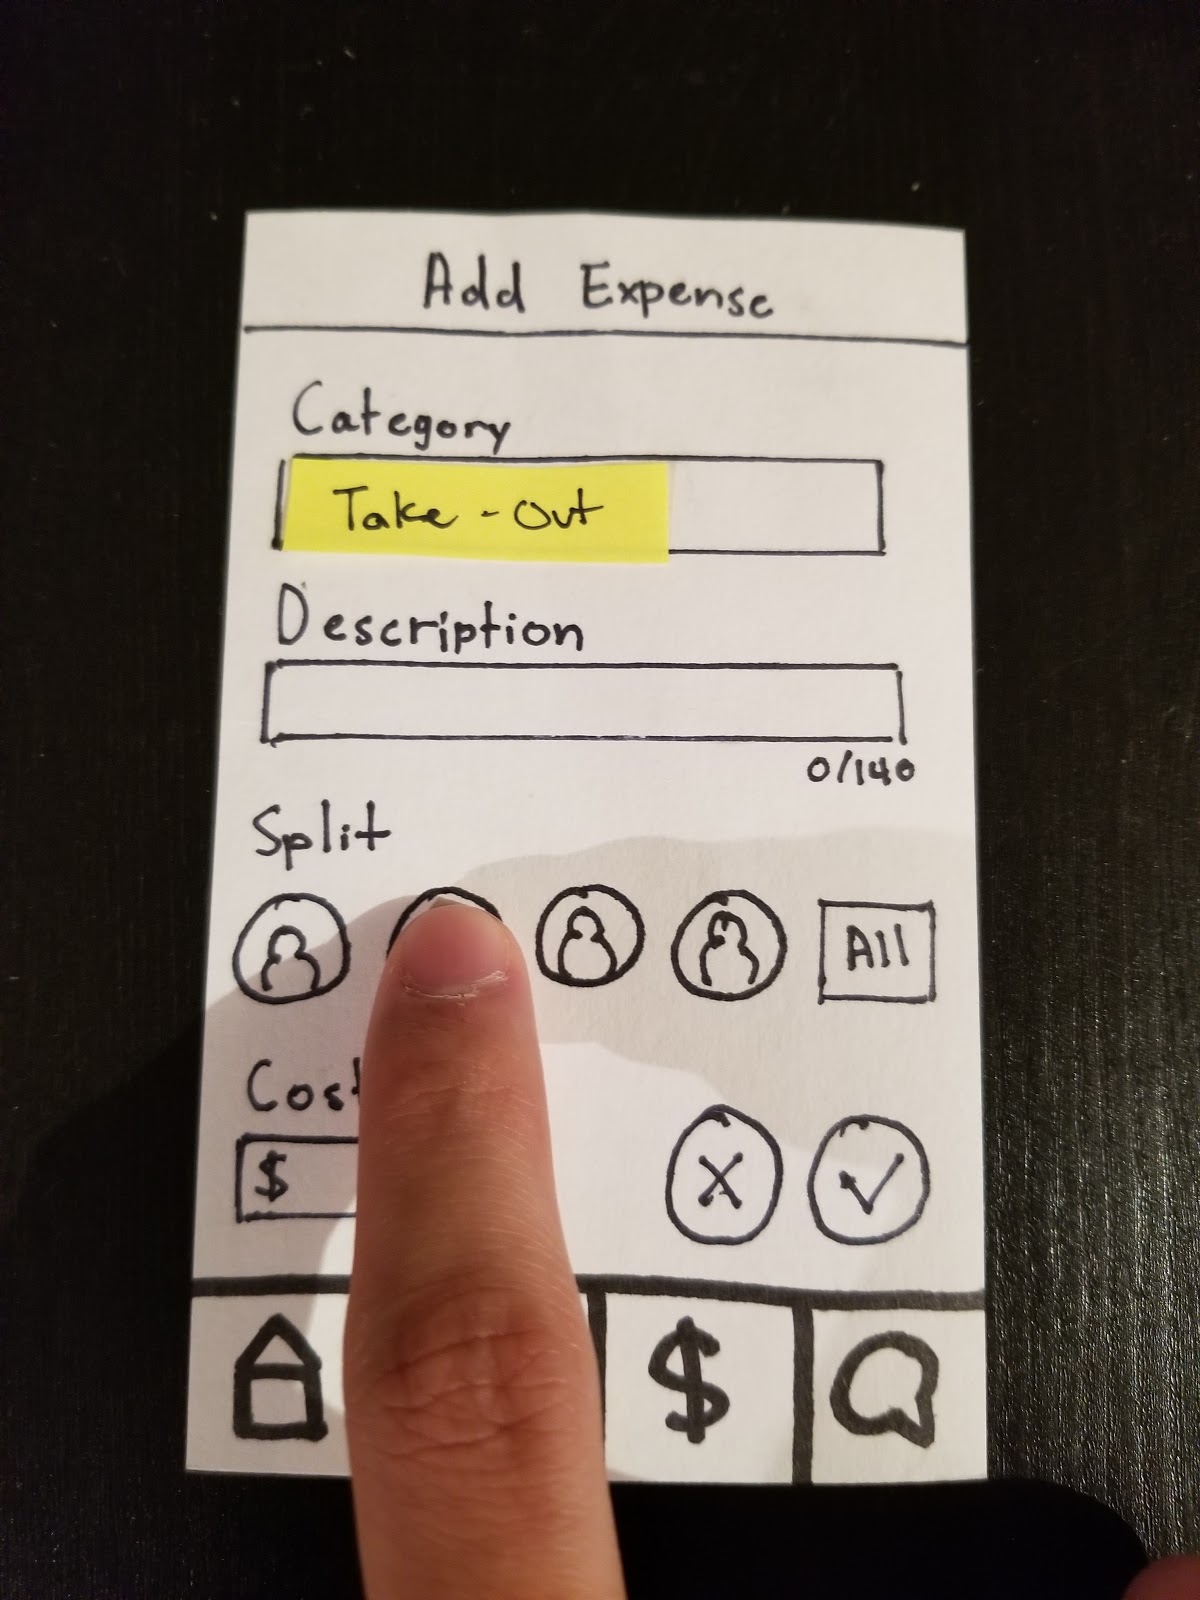 Add Expense
Category
Take-Out
Description
0/140
Split
All
Cost
$
X
$